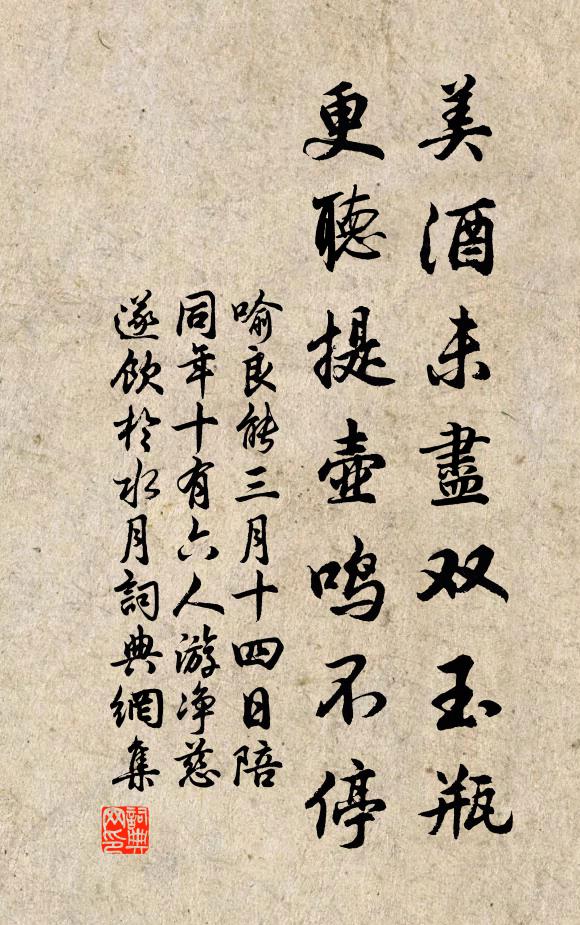 美酒未盡双玉瓶
更聽提壺鳴不停
喻良能三月十四日陪
同年十有六人游净慈
遂飲於水月詞典網集
詞典
网印